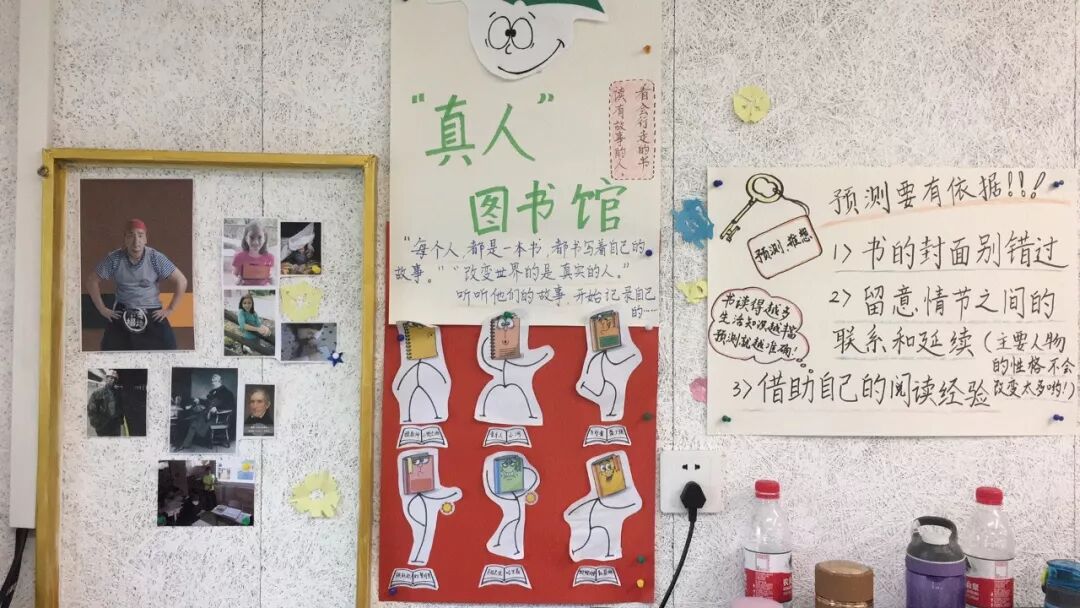 "真人"
图书馆
看会行走的书
读有故事的人
"每个人,都是一本书,都书写着自己的
故事。""改变世界的是真实的人。"
听听他们的故事,开始记录自己
的……
预测要有依据!!!
预测、推想
1>书的封面别错过
2>留意情节之间的
联系和延续(主要人物
的性格不会
改变太多哟!)
书读得越多
生活知识越丰富
预测就越准确!
3>借助自己的阅读经验